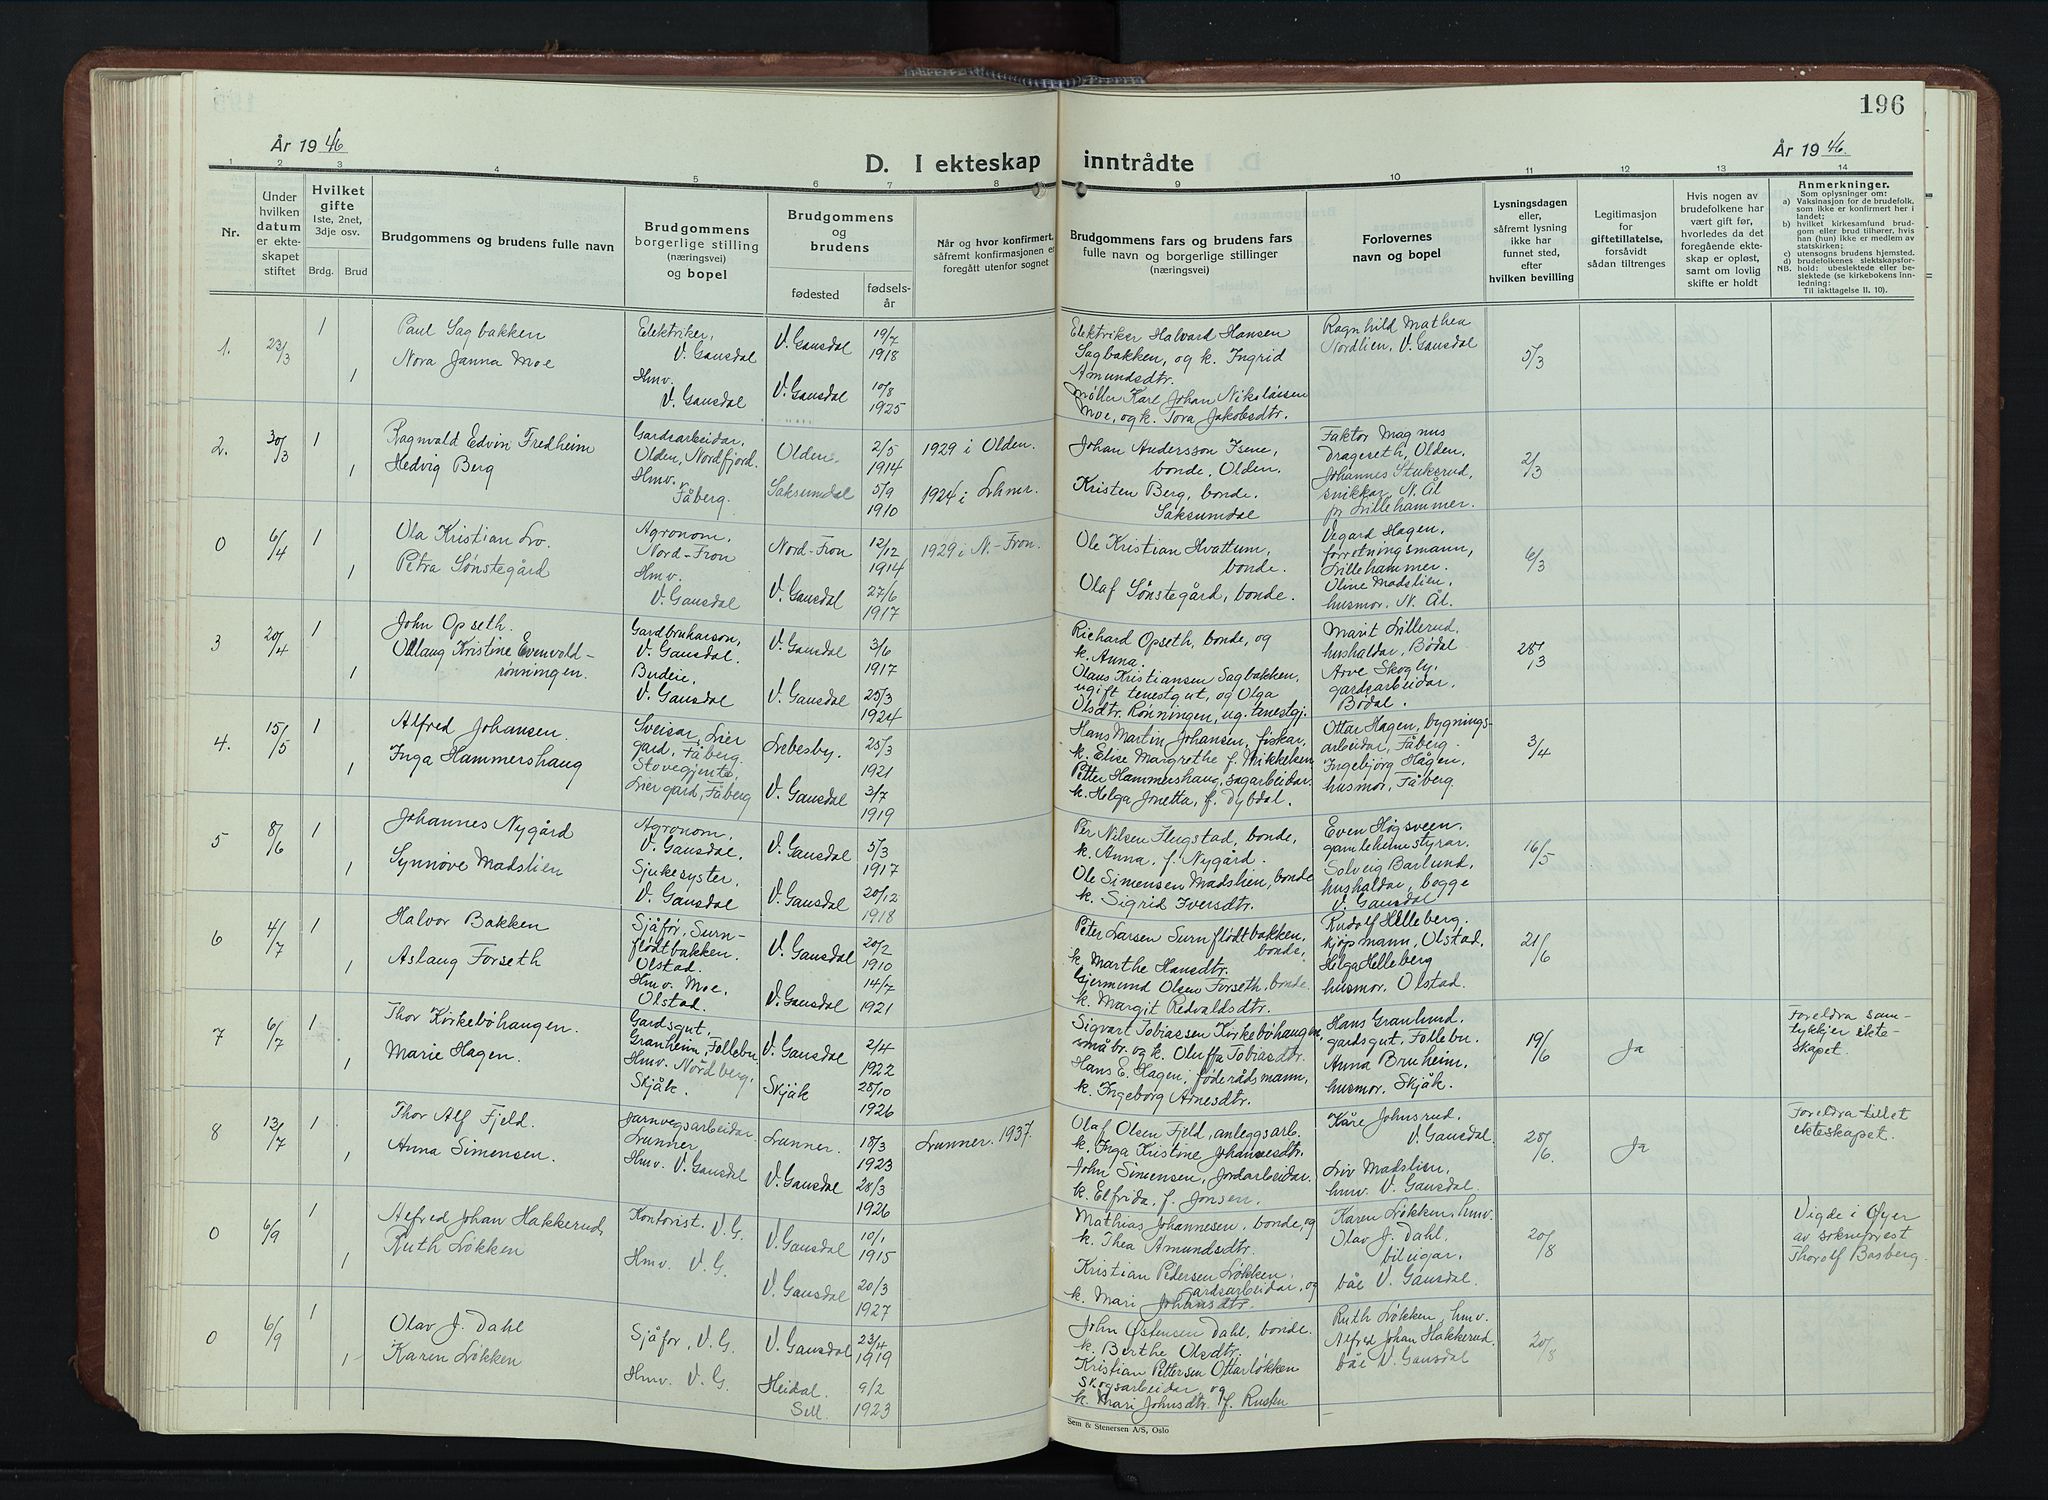 196
År 1946
D. I ekteskap inntrådte
År 1946.
1 2 3 4 5 6 7 8 9 10 11 12 13 14
Nr.
Under hvilken datum er ekteskapet stiftet
Hvilket gifte
1ste, 2net, 3dje osv.
Brdg. Brud
Brudgommens og brudens fulle navn
Brudgommens borgerlige stilling (næringsvei) og bopel
Brudgommens og brudens
fødested
fødselsår
Når og hvor konfirmert, såfremt konfirmasjonen er foregått utenfor sognet
Brudgommens fars og brudens fars fulle navn og borgerlige stillinger (næringsvei)
Forlovernes navn og bopel
Lysningsdagen eller, såfremt lysning ikke har funnet sted, efter hvilken bevilling
Legitimasjon for giftetillatelse, forsåvidt sådan tiltrenges
Hvis nogen av brudefolkene har vært gift før, hvorledes da det foregående ekteskap er opløst, samt om lovlig skifte er holdt
Anmerkninger.
Som oplysninger om:
a) Vaksinasjon for de brudefolk, som ikke er konfirmert her i landet;
b) hvilket kirkesamfund brudgom eller brud tilhører, hvis han (hun) ikke er medlem av statskirken;
c) utensogns brudens hjemsted.
d) brudefolkenes slektskapsforhold: ubeslektede eller beslektede (se kirkebokens innledning:
NB. Til iakttagelse II. 10).
1. 23/3 1 Paul Sagbakken Elektriker, V. Gausdal V. Gausdal 19/7 1918
Elektriker Halvard Hansen Sagbakken, og k. Ingrid Amundsdtr.
Ragnhild Mathea Nordlien, V. Gausdal
5/3
1 Nora Janna Moe Hmv. V. Gausdal V. Gausdal 10/8 1925
Møller Karl Johan Nikolaisen Moe, og k. Tora Jakobsdtr.
2. 30/3 1 Ragnvald Edvin Fredheim Gardsarbeidar, Olden, Nordfjord. Olden 2/5 1914 1929 i Olden.
Johan Andersson Isene, bonde, Olden.
Faktor Magnus Drageseth, Olden.
2/3
1 Hedvig Berg Hmv. Fåberg. Saksumdal 5/9 1910 1924 i Lhmr.
Kristen Berg, bonde. Saksumdal
Johannes Stukerud, snikkar, N. Ål pr Lillehammer.
0 6/4 1 Ola Kristian Lo. Agronom, Nord-Fron Nord-Fron 12/12 1914 1929 i N.-Fron.
Ole Kristian Hvattum, bonde.
Vegard Hagen, forretningsmann, Lillehammer.
6/3
1 Petra Sønstegård Hmv. V. Gausdal V. Gausdal 27/6 1917
Olaf Sønstegård, bonde.
Oline Madslien, husmor, N. Ål.
3 20/4 1 John Opseth. Gardbrukarson, V. Gausdal. V. Gausdal 3/6 1917
Richard Opseth, bonde, og k. Anna.
Marit Lillerud, hushaldar, Bødal
28/3
1 Ollaug Kristine Evenvoldrønningen. Budeie, V. Gausdal V. Gausdal 25/3 1924
Olaus Kristiansen Sagbakken, ugift tenestgut, og Olga Olsdtr. Rønningen, ug. tenestgj.
Arve Skogly, gardsarbeidar. Bødal.
4. 15/5 1 Alfred Johansen. Sveisar, Lier gard, Fåberg. Lebesby. 25/3 1921
Hans Martin Johansen, fiskar, k. Elise Margrethe f. Mikkelsen
Ottar Hagen, bygningsarbeidar, Fåberg.
3/4
1 Inga Hammershaug Stovegjente, Lier gard, Fåberg V. Gausdal 3/7 1919
Petter Hammershaug, sagarbeidar. k. Helga Jonetta, f. Dybdal.
Ingebjørg Hågen, husmor, Fåberg.
5 8/6 1 Johannes Nygård Agronom. V. Gausdal. V. Gausdal 5/3 1917
Per Nilsen Flugstad, bonde, k. Anna, f. Nygård.
Even Høgsveen. gamleheimstyrar.
16/5
1 Synnøve Madslien Sjukesyster. V. Gausdal V. Gausdal 20/12 1918
Ole Simensen Madslien, bonde k. Sigrid Iversdtr.
Solveig Barlund, hushaldar, begge V. Gausdal
6 4/7 1 Halvor Bakken Sjåfør, Surnflødtbakken. Olstad. V. Gausdal 20/2 1910
Peter Larsen Surnflødtbakken, bonde, k. Marthe Hansdtr.
Rudolf Helleberg. kjøpmann, Olstad.
21/6
1 Aslaug Forseth Hmv. Moe. Olstad. V. Gausdal 14/7 1921
Gjermund Olsen Forseth, bonde. k. Margit Redvaldsdtr.
Helga Helleberg husmor, Olstad.
7 6/7 1 Thor Kirkebøhaugen. Gardsgut, Granheim, Follebu V. Gausdal 2/4 1922
Sigvart Tobiassen Kirkebøhaugen, småbr. og k. Oluffa Tobiasdtr.
Hans Granlund. gardsgut, Follebu.
19/6 Ja
Foreldra samtykkjer ekteskapet.
1 Marie Hagen. Hmv. Nordberg, Skjåk. Skjåk 25/10 1926
Hans E. Hagen, føderådsmann, k. Ingeborg Arnesdtr.
Anna Bruheim, husmor. Skjåk.
8 13/7 1 Thor Alf Fjeld. Jarnvegsarbeidar Lunner Lunner. 18/3 1923 Lunner. 1937.
Olaf Olsen Fjeld, anleggsarb. k. Inga Kristine Johannesdtr.
Kåre Johnsrud. V. Gausdal.
28/6. Ja
Foreldra tillet ekteskapet.
1 Anna Simensen. Hmv. V. Gausdal V. Gausdal 28/3 1926
John Simensen, Jordarbeidar. k. Elfrida, f. Jonsen.
Liv Madslien, hmv. V. Gausdal.
0 6/9 1 Alfred Johan Hakkerud, Kontorist. V. G. V. Gausdal 10/1 1915
Mathias Johannesen, bonde, og k. Thea Amundsdtr.
Karen Løkken, hmv.
20/8
Vigde i Øyer av sokneprest Thorolf Basberg.
1 Ruth Løkken Hmv. V. G. V. Gausdal 20/3 1927
Kristian Pedersen Løkken, gardsarbeidar, og k. Mari Johansdtr.
Olav J. Dahl, bileigar, båe V. Gausdal.
0 6/9 1 Olav J. Dahl Sjåfør, V. G. V. Gausdal 23/4 1919
John Østensen Dahl, bonde. k. Berthe Olsdtr.
Ruth Løkken, hmv.
20/8
1 Karen Løkken Hmv. V. G. Heidal. Sell. 9/2 1923
Kristian Pettersen Ottarløkken skogsarbeidar og k. Mari Johnsdtr. f. Rusten
Alfred Johan Hakkerud. båe V. Gausdal
Sem & Stenersen A/S, Oslo